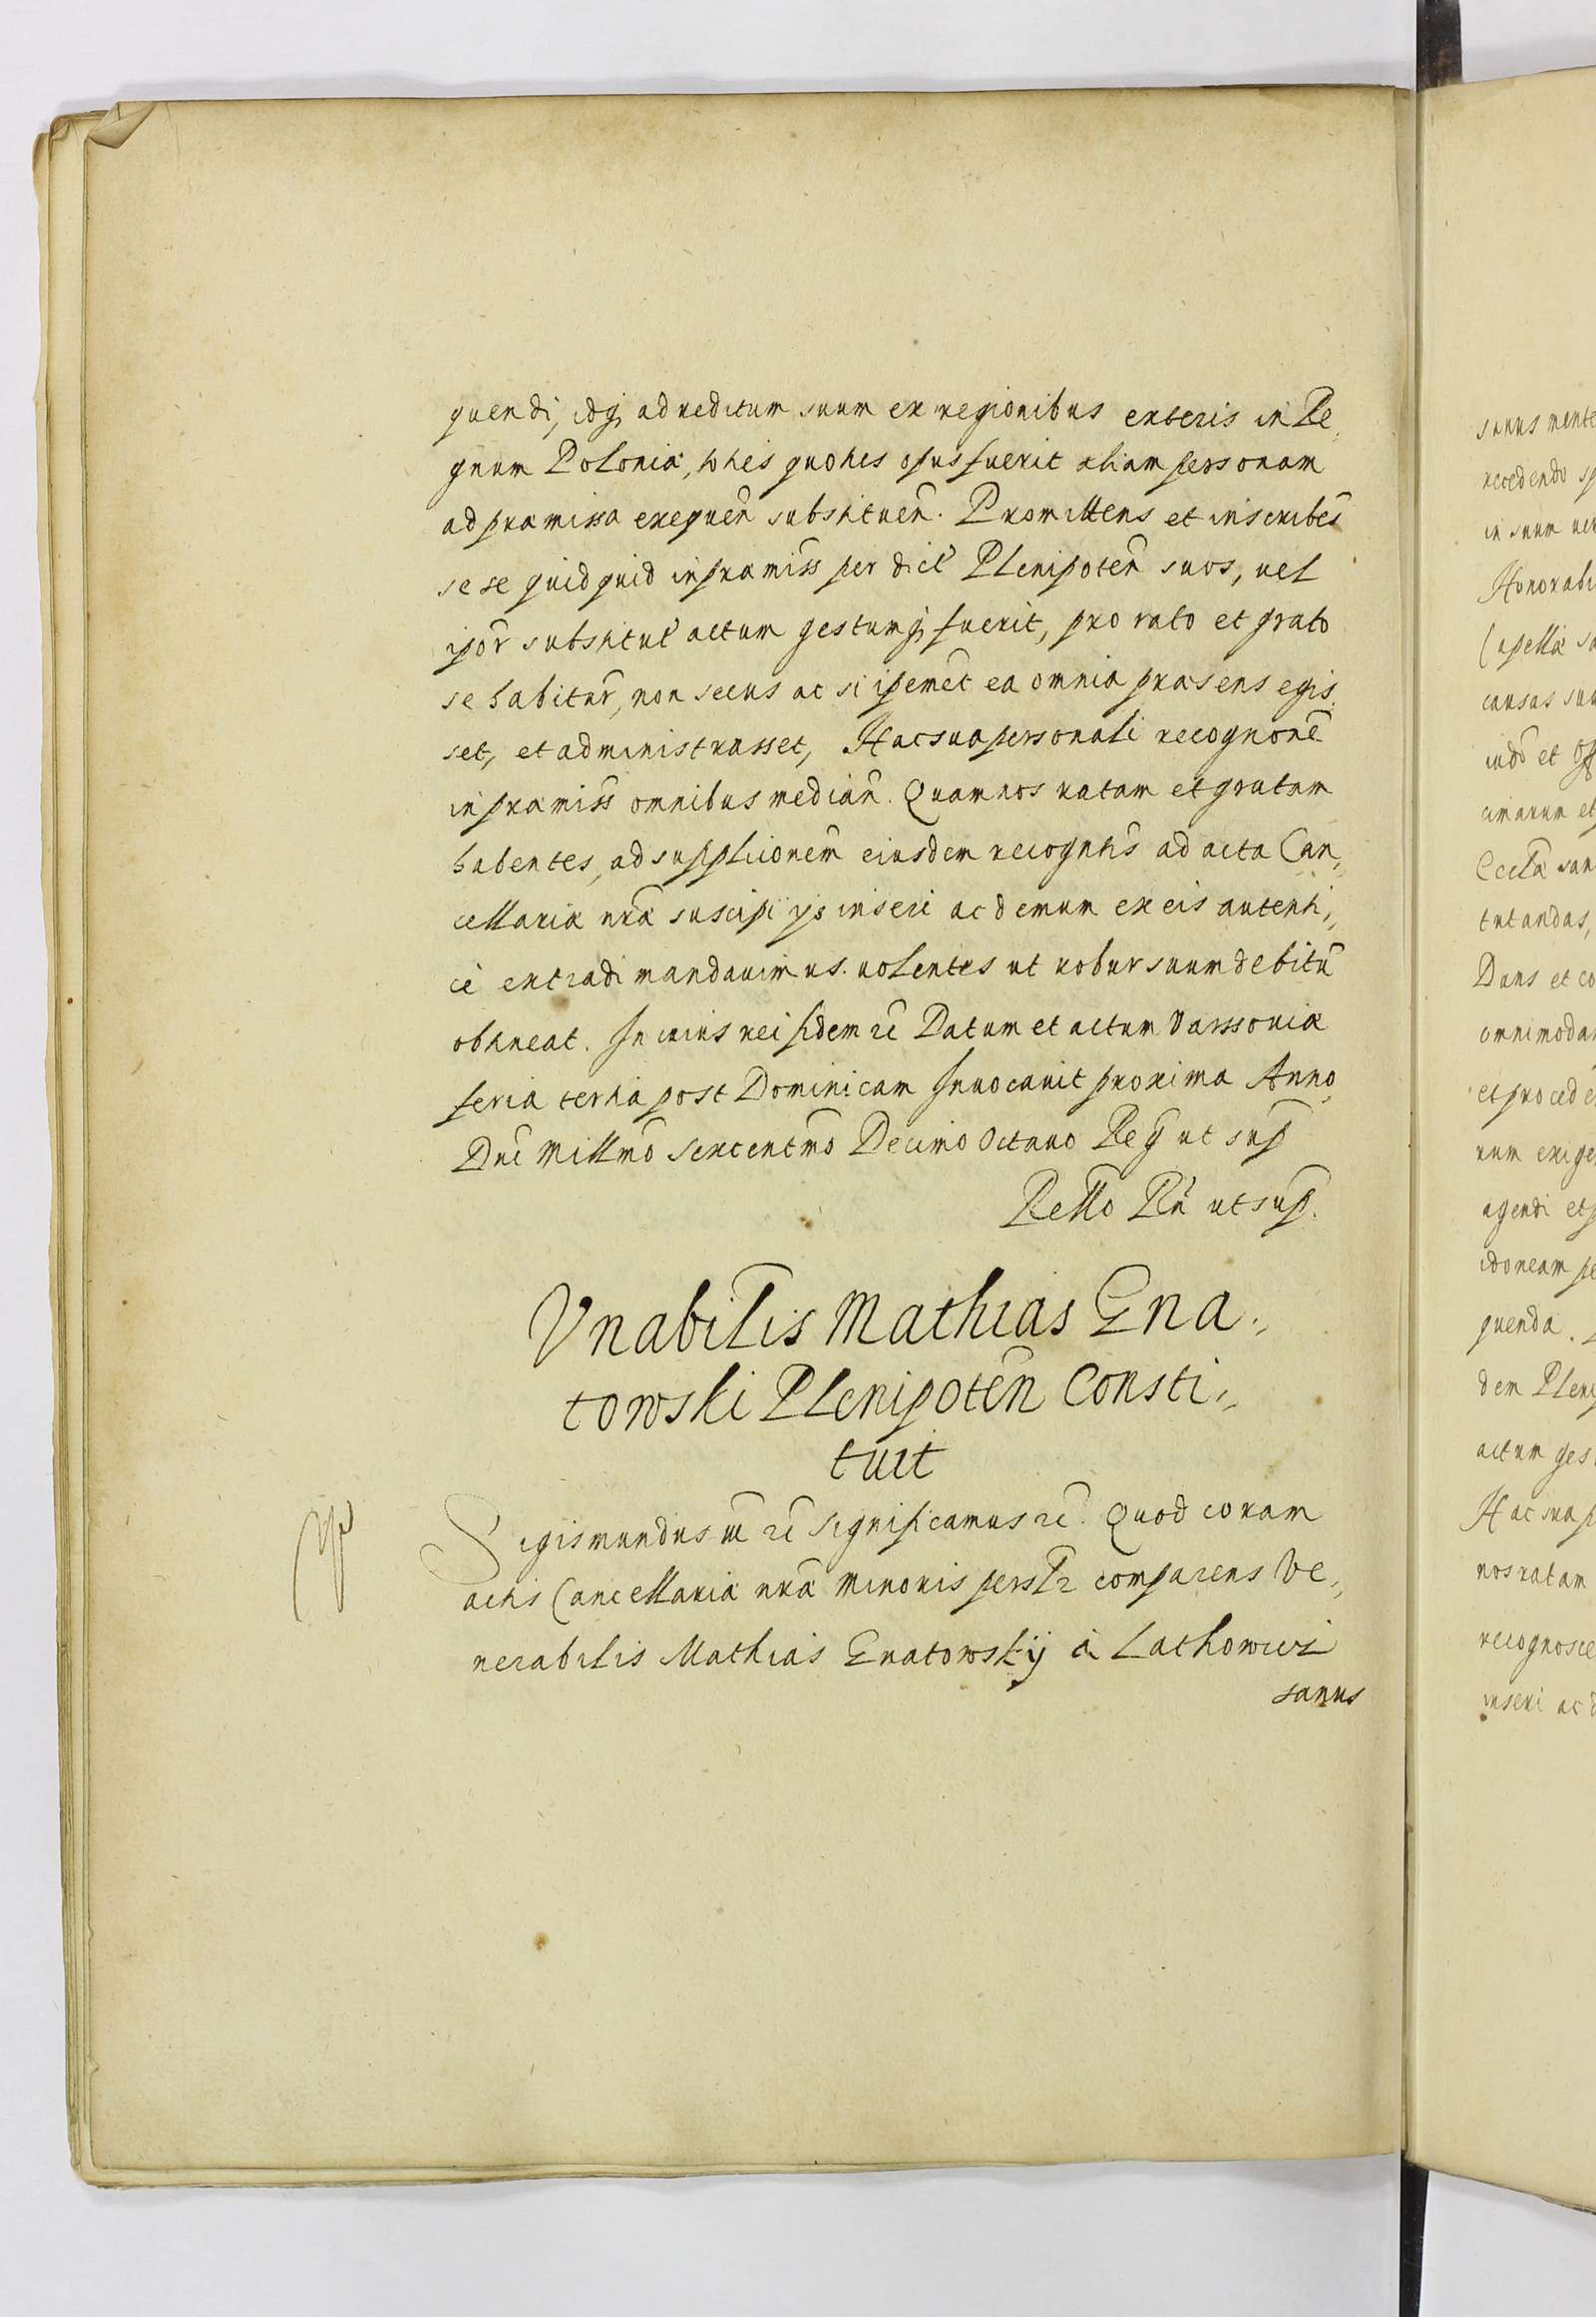 quendi, idq; ad reditum suum ex regionibus exteris in Re,
gnum Poloniæ, toties quoties opus fuerit aliam personam
ad præmissa exequen̄ substituen̄. Promittens et inscribēs
se se quidquid in præmiss̄ per dict̄ Plenipoten̄ suos, uel
ipor̄ substitut̄ actum gestumq; fuerit, pro rato et grato
se habitur̄, non secus ac si ipemet̄ ea omnia præsens egis,
set, et administrasset, Hac sua personali recognone̅
in præmiss̄ omnibus median̄. Quam nos ratam et gratam
habentes, ad supplicionem̄ eiusdem recogntis̄ ad acta Can,,
cellariæ nr̄æ suscipi ijs inseri ac demum ex eis autenti,,
cè extradi mandauimus. uolentes ut robur suum debitū
obtineat. In cuius rei fidem ec̄ Datum et actum Varssouiæ
feria tertia post Dominicam Inuocauit proxima Anno
Dnī Millmō sexcentmō Decimo Octauo Reḡ ut sup̄
Rello Rn̄ ut sup̄.
Vnabilis Mathias Gna,,
towski Plenipoten̄ Consti,,
tuit
Sigismundus iii̅ ec̄ Significamus ec̄. Quod coram
actis Cancellariæ nr̄æ minoris persl̄r comparens Ve,,
nerabilis Mathias Gnatowskij à Lathowicz
sanus
sanus mente
recedendo
in suum
Honorabi
Capellæ
causas
et
et
tutandas,
Dans et co
omnimodam
et proced
rum exige
agendi et
idoneam pe
quenda.
dem Pleni
actum ges
Hac sua p
nos ratam
recognosce
inseri ac d